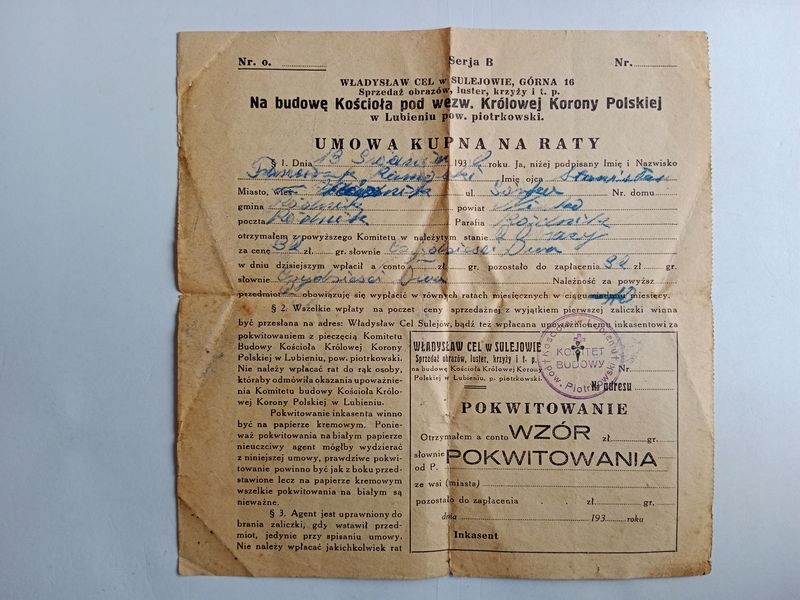 Nr. o. ............ Serja B Nr. ............
WŁADYSŁAW CEL w SULEJOWIE, GÓRNA 16
Sprzedaż obrazów, luster, krzyży i t. p.
Na budowę Kościoła pod wezw. Królowej Korony Polskiej
w Lubieniu pow. piotrkowski.
UMOWA KUPNA NA RATY
§ 1. Dnia 13 193 roku. Ja, niżej podpisany Imię i Nazwisko
Imię ojca Stanisław
Miasto, wieś ul. Nr. domu
gmina powiat
poczta Parafia
otrzymałem z powyższego Komitetu w należytym stanie
za cenę 32 zł. gr. słownie Dwa
w dniu dzisiejszym wpłacił a conto zł. gr. pozostało do zapłacenia 32 zł. gr.
słownie Dwa Należność za powyższ
przedmiot obowiązuję się wypłacić w równych ratach miesięcznych w ciągu 10 miesięcy.
§ 2. Wszelkie wpłaty na poczet ceny sprzedażnej z wyjątkiem pierwszej zaliczki winna
być przesłana na adres: Władysław Cel Sulejów, bądź też wpłacana upoważnionemu inkasentowi za
pokwitowaniem z pieczęcią Komitetu
Budowy Kościoła Królowej Korony
Polskiej w Lubieniu, pow. piotrkowski.
Nie należy wpłacać rat do rąk osoby,
któraby odmówiła okazania upoważnie-
nia Komitetu budowy Kościoła Królo-
wej Korony Polskiej w Lubieniu.
Pokwitowanie inkasenta winno
być na papierze kremowym. Ponie-
waż pokwitowania na białym papierze
nieuczciwy agent mógłby wydzierać
z niniejszej umowy, prawdziwe pokwi-
towanie powinno być jak z boku przed-
stawione lecz na papierze kremowym
wszelkie pokwitowania na białym są
nieważne.
§ 3. Agent jest uprawniony do
brania zaliczki, gdy wstawił przed-
miot, jedynie przy spisaniu umowy.
Nie należy wpłacać jakichkolwiek rat
WŁADYSŁAW CEL w SULEJOWIE
Sprzedaż obrazów, luster, krzyży i t. p.
na budowę Kościoła Królowej Korony
Polskiej w Lubieniu, p. piotrkowski.
KOMITET
BUDOWY
pow. Piotrkowski
Nr.
Nr adresu
POKWITOWANIE
Otrzymałem a conto WZÓR zł. gr.
słownie POKWITOWANIA
od P.
ze wsi (miasta)
pozostało do zapłacenia zł. gr.
dnia 193 roku
Inkasent